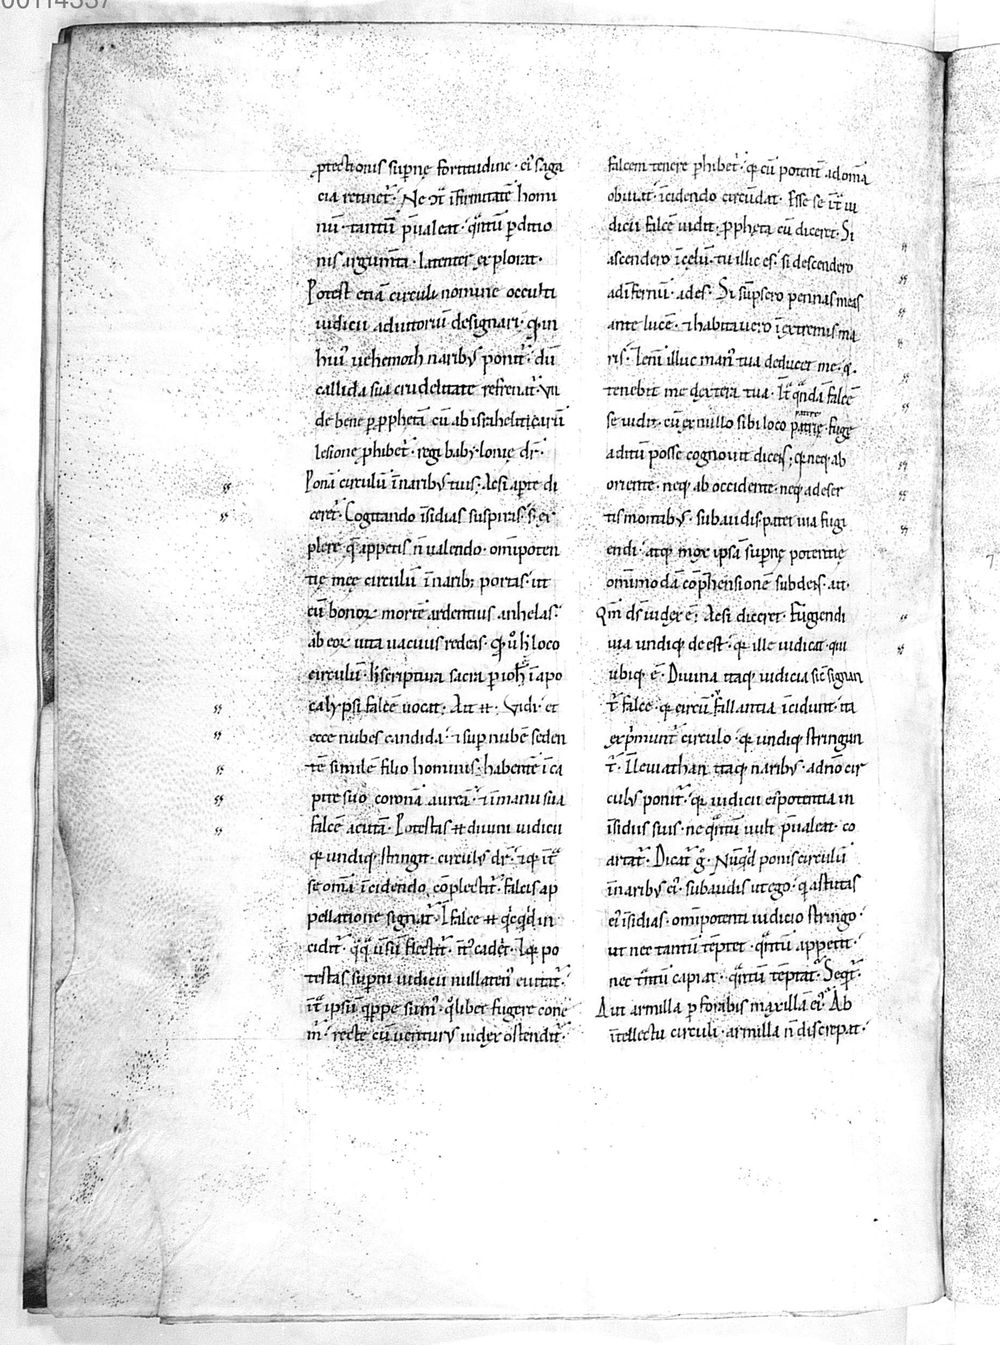 00114337
ptectionis supnę fortitudine · ei᷒ saga
cia retinet᷑ · Ne ↄt̄ īfirmitatē homi
nū · tantū p̄ualeat · q̄ntū pditio
nis argum̄ta · latenter explorat ·
Potest etiā circuli nomine occulti
iudicii adiutoriū designari · q̄ in
hui᷒ uehemoth narib᷒ ponit᷑ · dū
callida sua crudelitate refrenat᷑ · Vn
de bene p pphetā cū ab israheliticarū
lesione phibet᷑ · regi babylonię dr̄ ·
Ponā circulū ī narib᷒ tuis · Ac si apte di
ceret᷑ · Cogitando īsidias suspiras · s; ex
plere q̄ appetis n̄ ualendo · om̄ipoten
tię meę circulū ī narib; portas · ut
cū bonoꝝ morte ardentius anhelas ·
ab eoꝝ uita uacuus redeas · q̄ ů h̄ loco
circulū · h̄ scriptura sacra p ioh̄ī apo
calypsi falcē uocat · Ait ⁒ · Vidi et
ecce nubes candida · ⁊ sup nubē seden
tē similē filio hominis · habentē ī ca
pite suo coronā aureā · ⁊ ī manu sua
falcē acutā · Potestas ⁒ diuini iudicii
q̄ undiq; stringit · circul᷒ dr̄ · ⁊ q̄ īt̄
se om̄a īcidendo cōplectit᷑ · falcis ap
pellatione signat᷑ · I falce ⁒ q̄cq̄d in
cidit᷑ · q̄q̄ uersū flectit᷑ · īt᷒ cadet · Iq̄ po
testas supni iudicii nullaten᷒ euitat᷑ ·
īt̄ ipsū q̄ppe sum᷒ · q̄libet fugere cone
m᷑ · recte cū uentur᷒ iudex ostendit᷑ ·
falcem tenere phibet᷑ · q̄ cū potent̄ ad om̄a
obuiat · īcidendo circūdat · Esse se īt̄ iu
dicii falcē uidit · ppheta cū diceret · Si
ascendero ī cęlū · tu illic es · si descendero
ad īfernū · ades · Si sūpsero pennas meas
ante lucē · ⁊ habitauero ī extremis ma
ris · &eni illuc man᷒ tua deducet me · &
tenebit me dextera tua · It̄ q̄nda falcē
se uidit · cū ex nullo sibi loco patrię fugę
patere
aditū posse cognouit dicens · q̄ neq; ab
oriente · neq; ab occidente · neq; a deser
tis montib᷒ · subaudis patet uia fugi
endi · atq; mox ipsā supnę potentię
om̄imodā cōphensionē subdens · ait ·
Qm̄ ds̄ iudex ē · Ac si diceret · Fugiendi
uia undiq; deest · q̄ ille iudicat · qui
ubiq; ē · Diuina itaq; iudicia sic̄ signan
t᷑ falce · q̄ circū fallantia īcidunt · ita
exprimunt᷑ circulo · q̄ undiq; stringun
t᷑ · I leuiathan itaq; narib᷒ · a dn̄o cir
cul᷒ ponit᷑ · q̄ iudicii ei᷒ potentia in
īsidiis suis · ne q̄ntū uult p̄ualeat · co
artat᷑ · Dicat᷑ g̊ · Nūq̄d ponis circulū
ī narib᷒ ei᷒ · subaudis ut ego · q̄ astutas
ei᷒ īsidias · om̄ipotenti iudicio stringo ·
ut nec tantū tēptet · q̄ntū appetit ·
nec t̄ntū capiat · q̄ntū tēptat · Seqt᷑ ·
Aut armilla pforabis maxillā ei᷒ · Ab
ītellectu circuli · armilla n̄ discrepat ·